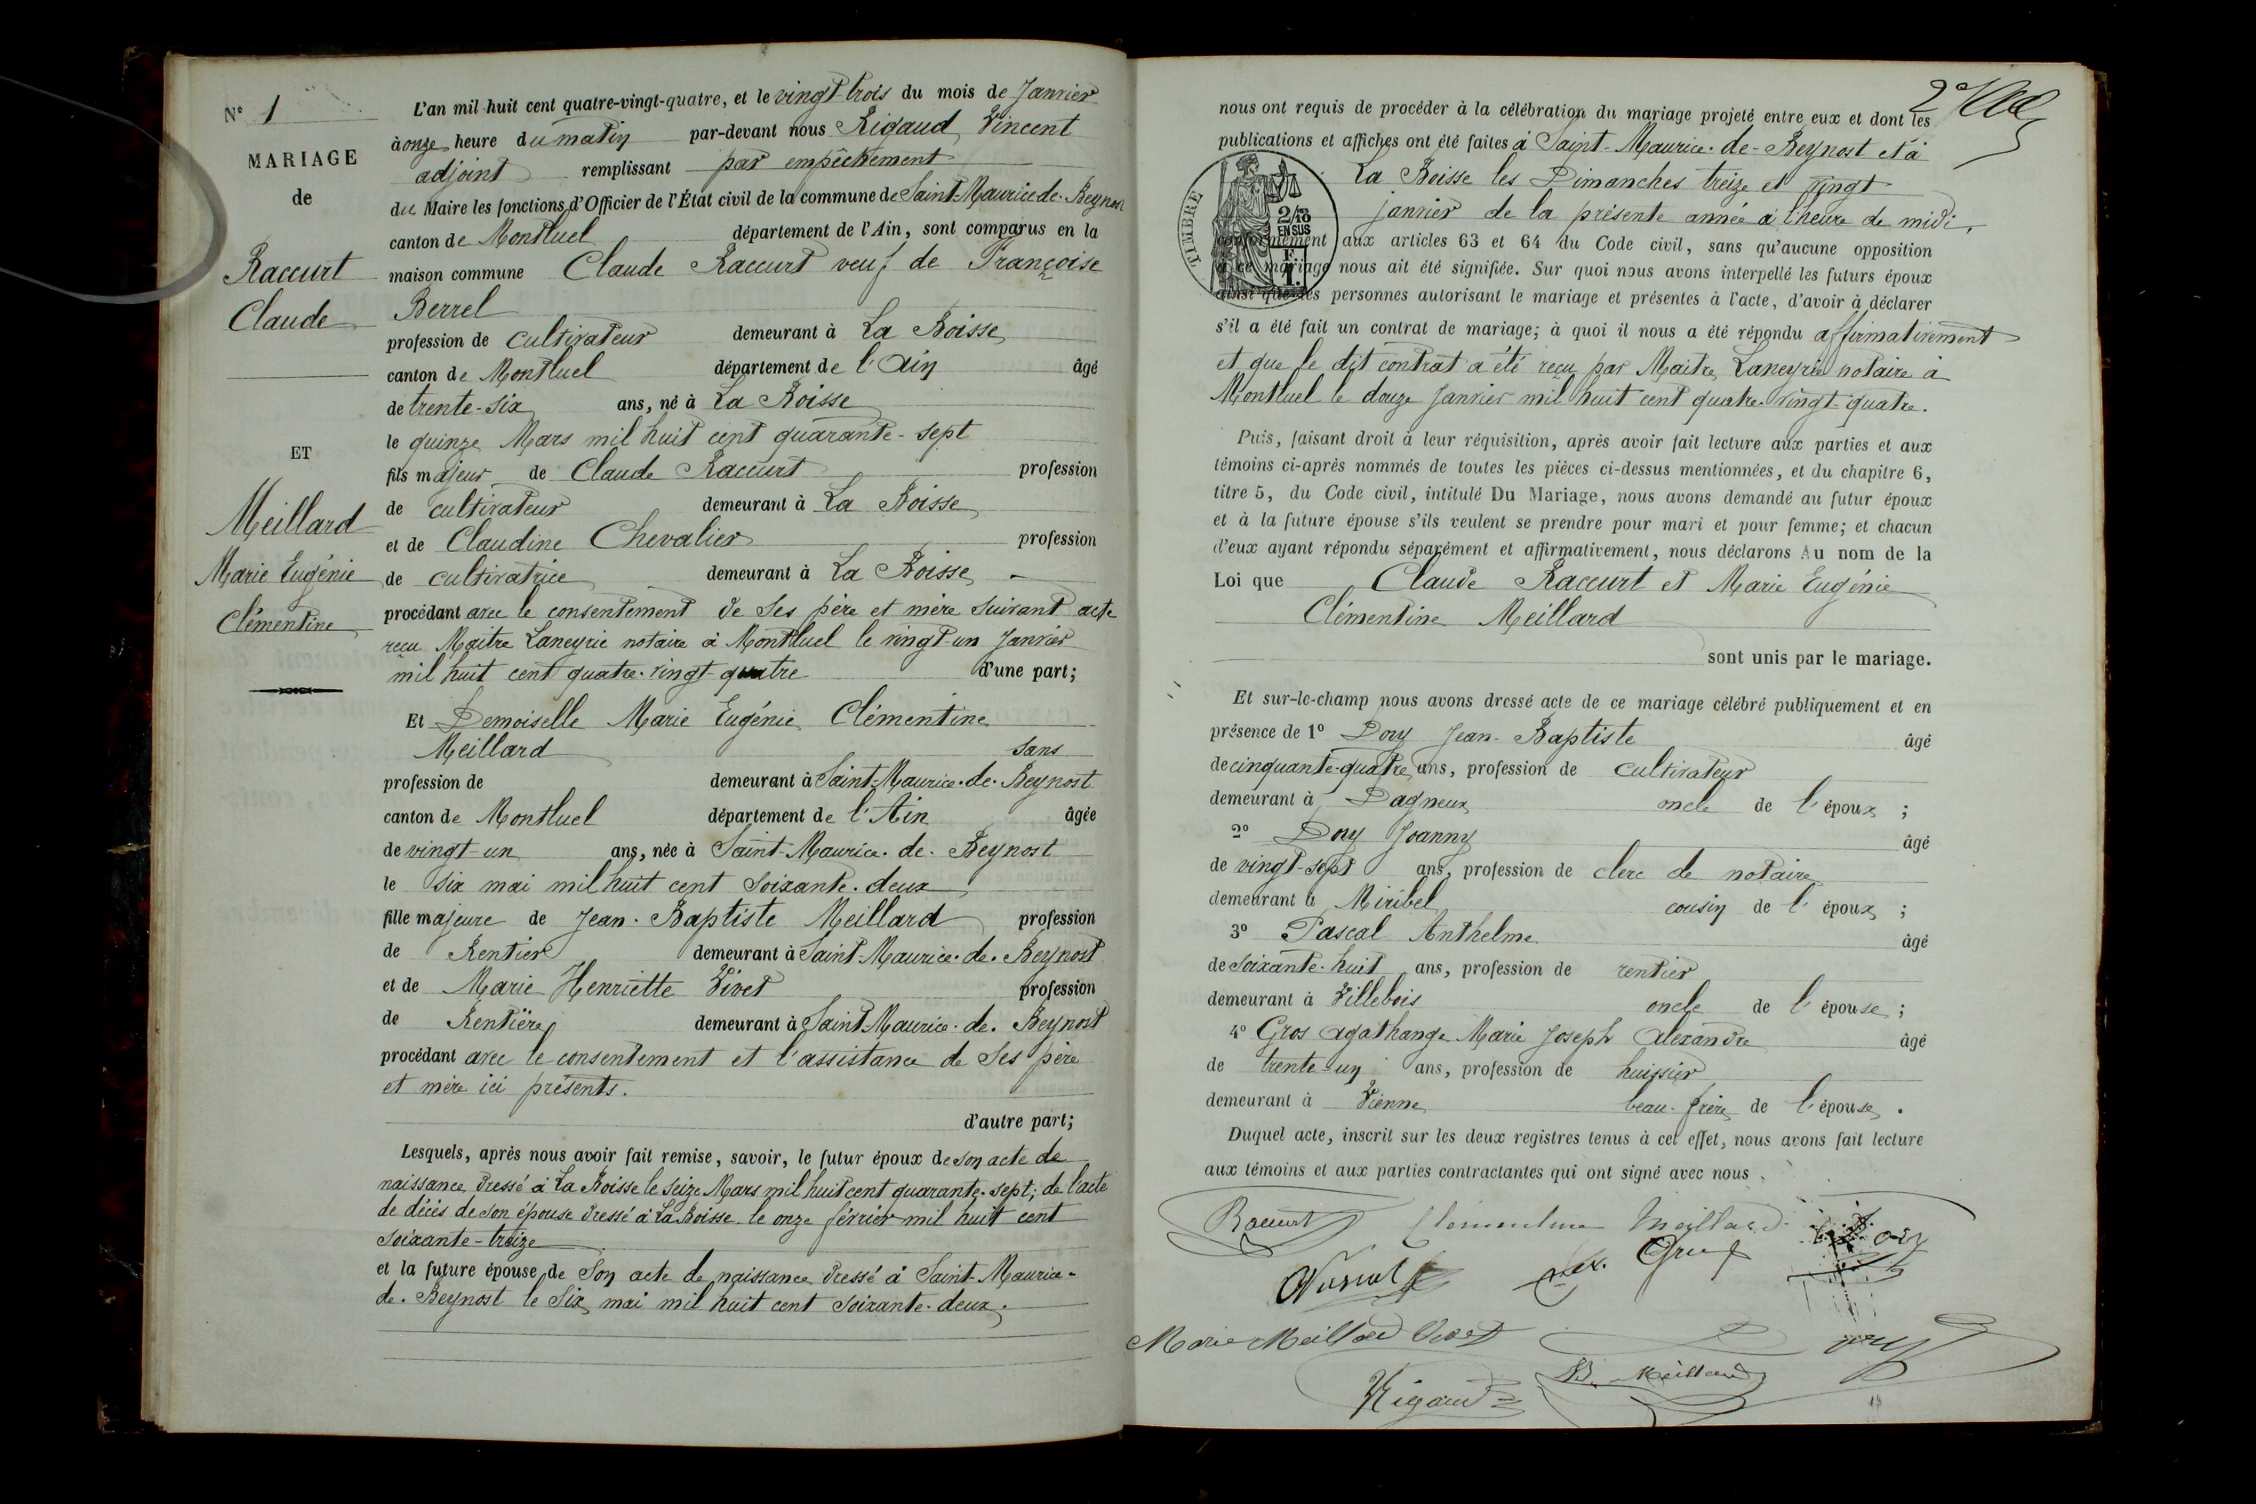 N° 1
MARIAGE
de
Raccurt
Claude
ET
Meillard
Marie Eugénie
Clémentine
L'an mil huit cent quatre-vingt-quatre, et le vingt-trois du mois de Janvier
à onze heure du matin par-devant nous Rigaud Vincent
adjoint remplissant par empêchement
du Maire les fonctions d'Officier de l'État civil de la commune de Saint-Maurice-de-Beynost
canton de Montluel département de l'Ain, sont comparus en la
maison commune Claude Raccurt veuf de Françoise
Berrel
profession de cultivateur demeurant à La Boisse
canton de Montluel département de l'Ain âgé
de trente-six ans, né à La Boisse
le quinze Mars mil huit cent quarante-sept
fils majeur de Claude Raccurt profession
de cultivateur demeurant à La Boisse
et de Claudine Chevalier profession
de cultivatrice demeurant à La Boisse
procédant avec le consentement de ses père et mère suivant acte
reçu Maître Laneyrie notaire à Montluel le vingt-un Janvier
mil huit cent quatre-vingt-quatre d'une part;
Et Demoiselle Marie Eugénie Clémentine
Meillard sans
profession de demeurant à Saint-Maurice-de-Beynost
canton de Montluel département de l'Ain âgée
de vingt-un ans, née à Saint-Maurice-de-Beynost
le six mai mil huit cent soixante-deux
fille majeure de Jean-Baptiste Meillard profession
de Rentier demeurant à Saint-Maurice-de-Beynost
et de Marie Henriette Vivet profession
de Rentière demeurant à Saint-Maurice-de-Beynost
procédant avec le consentement et l'assistance de ses père
et mère ici présents.
d'autre part;
Lesquels, après nous avoir fait remise, savoir, le futur époux de son acte de
naissance dressé à La Boisse le seize Mars mil huit cent quarante-sept; de l'acte
de décès de son épouse dressé à La Boisse le onze février mil huit cent
soixante-treize
et la future épouse de son acte de naissance dressé à Saint-Maurice-
de-Beynost le six mai mil huit cent soixante-deux.
2e
nous ont requis de procéder à la célébration du mariage projeté entre eux et dont les
publications et affiches ont été faites à Saint-Maurice-de-Beynost et à
La Boisse les Dimanches treize et vingt
janvier de la présente année à l'heure de midi,
TIMBRE
2/10
EN SUS
F.
1.
conformément aux articles 63 et 64 du Code civil, sans qu'aucune opposition
à ce mariage nous ait été signifiée. Sur quoi nous avons interpellé les futurs époux
ainsi que les personnes autorisant le mariage et présentes à l'acte, d'avoir à déclarer
s'il a été fait un contrat de mariage; à quoi il nous a été répondu affirmativement
et que le dit contrat a été reçu par Maître Laneyrie notaire à
Montluel le douze Janvier mil huit cent quatre-vingt-quatre.
Puis, faisant droit à leur réquisition, après avoir fait lecture aux parties et aux
témoins ci-après nommés de toutes les pièces ci-dessus mentionnées, et du chapitre 6,
titre 5, du Code civil, intitulé Du Mariage, nous avons demandé au futur époux
et à la future épouse s'ils veulent se prendre pour mari et pour femme; et chacun
d'eux ayant répondu séparément et affirmativement, nous déclarons Au nom de la
Loi que Claude Raccurt et Marie Eugénie
Clémentine Meillard
sont unis par le mariage.
Et sur-le-champ nous avons dressé acte de ce mariage célébré publiquement et en
présence de 1° Dory Jean-Baptiste âgé
de cinquante-quatre ans, profession de cultivateur
demeurant à Dagneux oncle de l'époux;
2° Dory Joanny âgé
de vingt-sept ans, profession de clerc de notaire
demeurant à Miribel cousin de l'époux;
3° Pascal Anthelme âgé
de soixante-huit ans, profession de rentier
demeurant à Villebois oncle de l'épouse;
4° Gros Agathange Marie Joseph Alexandre âgé
de trente-un ans, profession de huissier
demeurant à Vienne beau-frère de l'épouse.
Duquel acte, inscrit sur les deux registres tenus à cet effet, nous avons fait lecture
aux témoins et aux parties contractantes qui ont signé avec nous.
Raccurt Clémentine Meillard
Marie Meillard Vivet
Rigaud Meillard